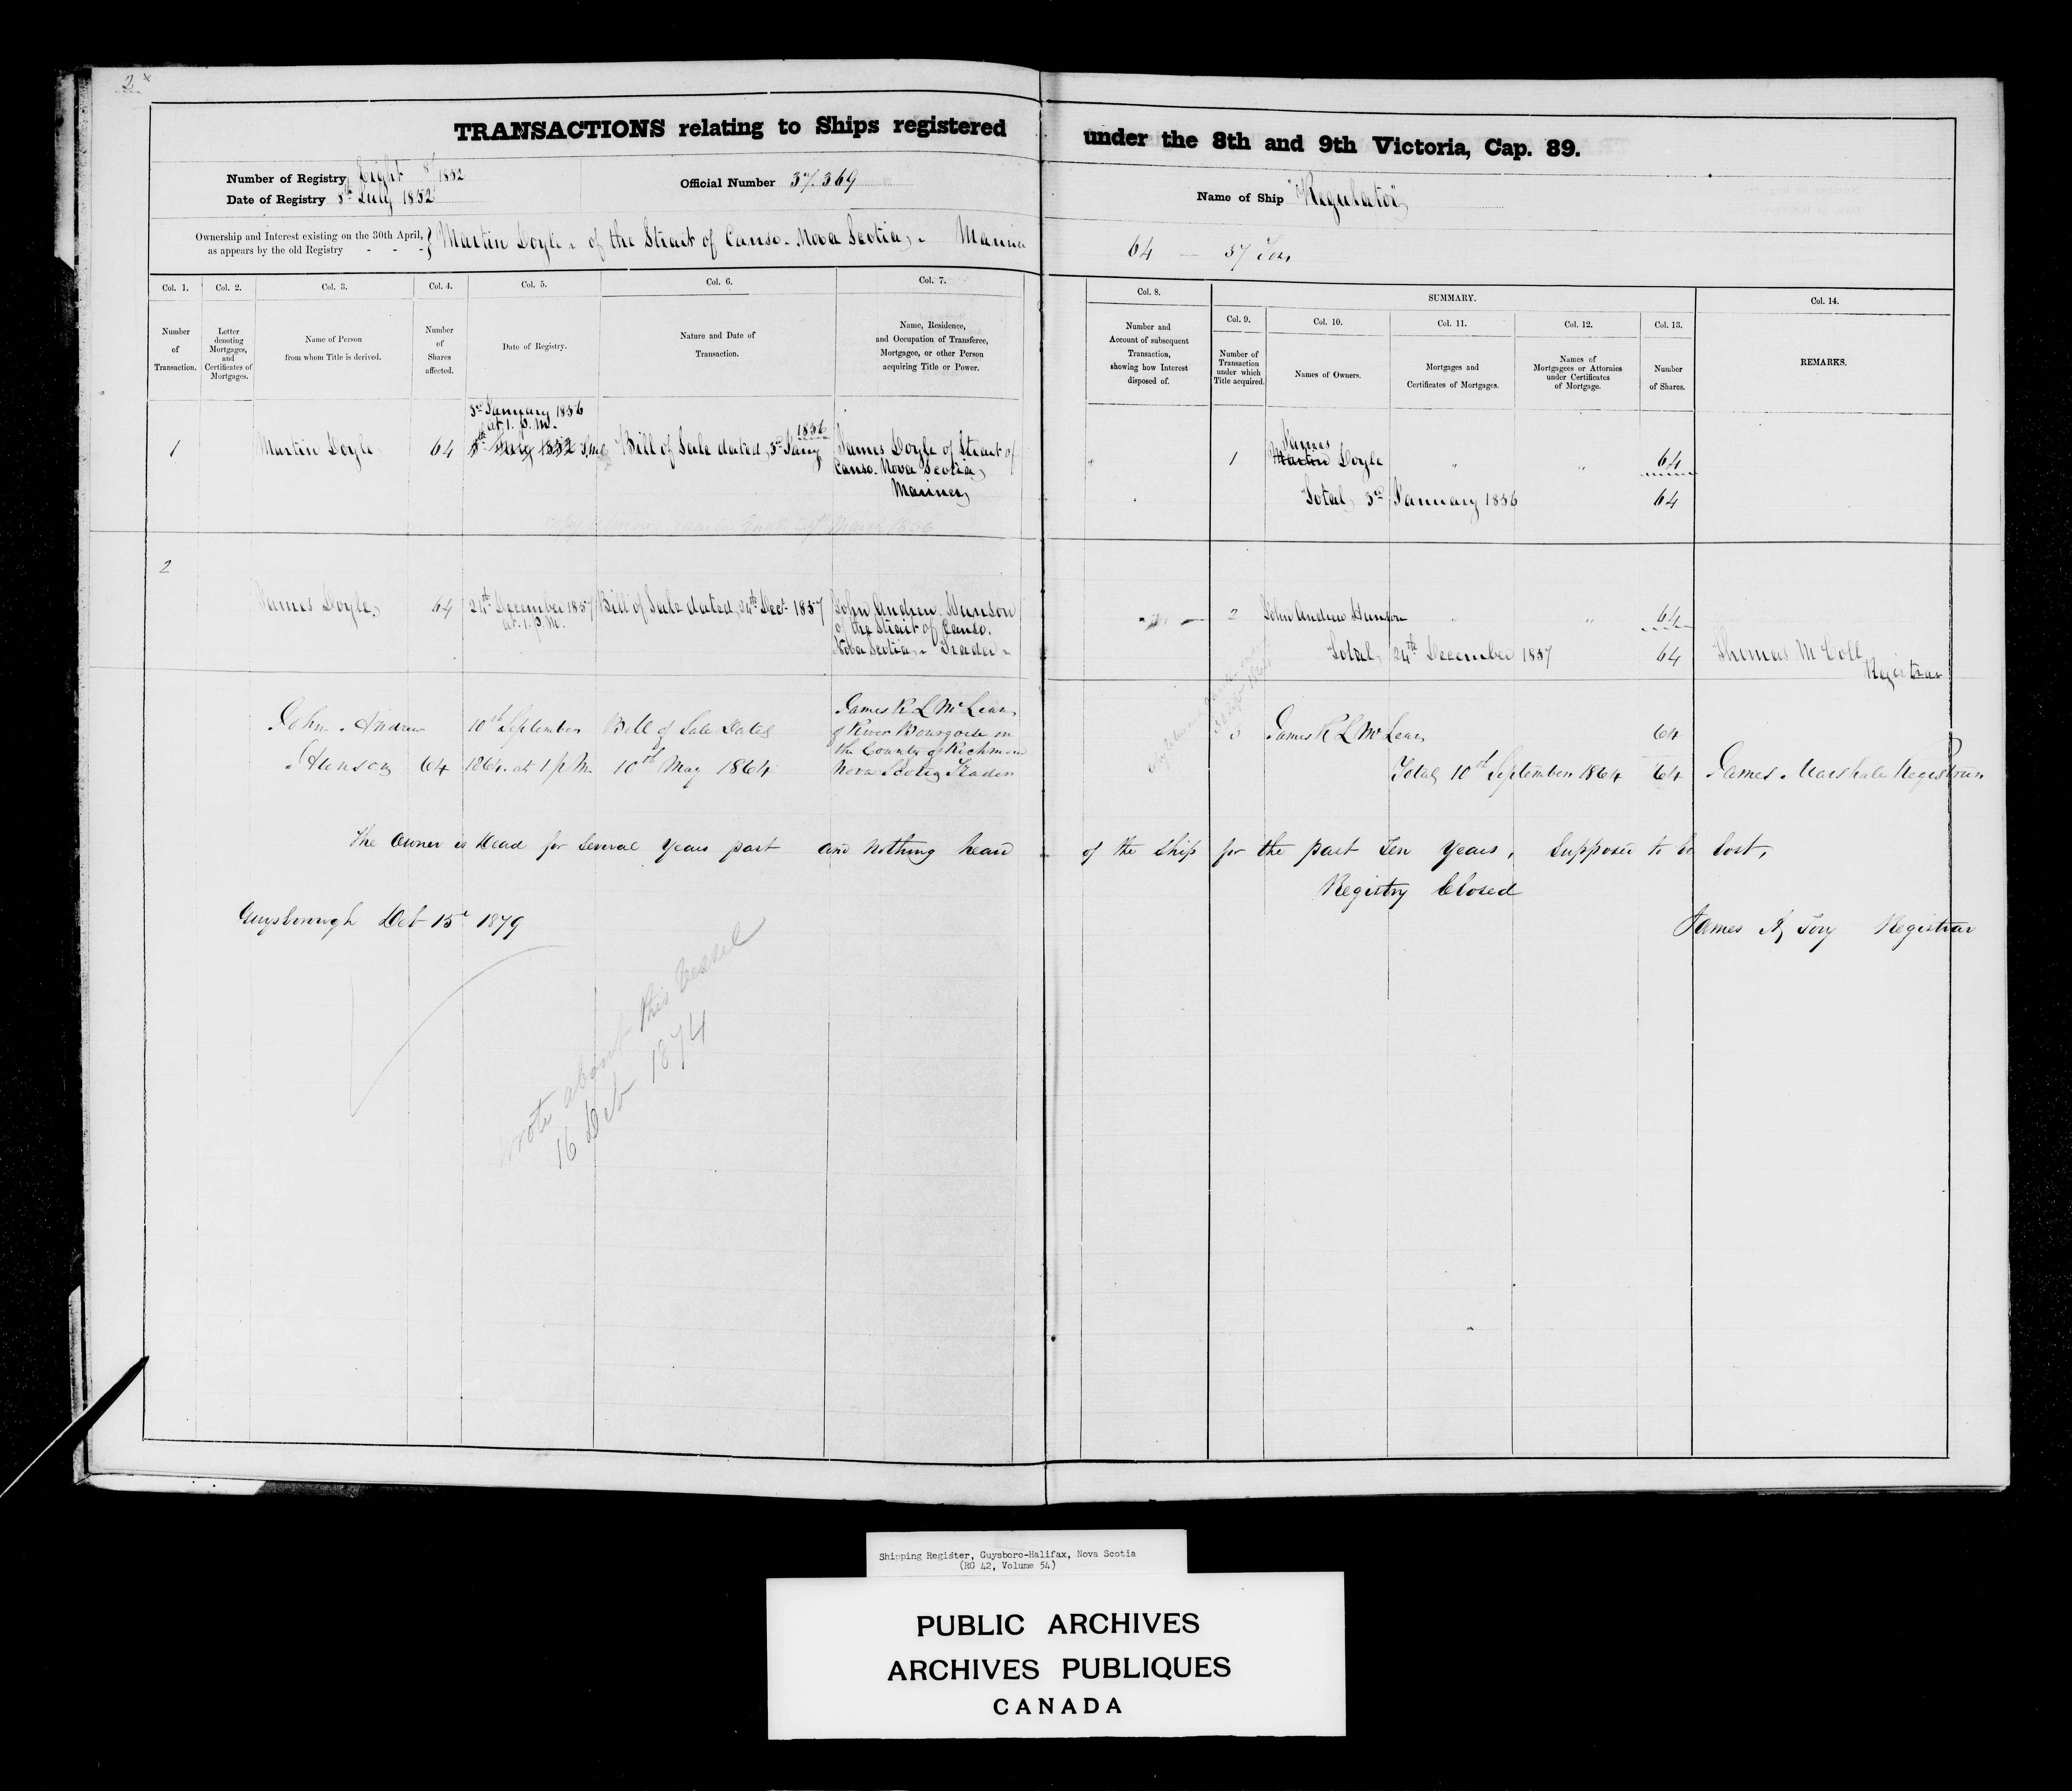 2 x
TRANSACTIONS relating to Ships registered under the 8th and 9th Victoria, Cap. 89.
Number of Registry Eight 8/1852
Date of Registry 8th July 1852
Official Number 37.369
Name of Ship "Regulator"
Ownership and Interest existing on the 30th April,
as appears by the old Registry - - -
Martin Doyle - of the Strait of Canso - Nova Scotia - Marine
64 — 57 Tons
Col. 1.
Number
of
Transaction.
Col. 2.
Letter
denoting
Mortgages,
and
Certificates of
Mortgages.
Col. 3.
Name of Person
from whom Title is derived.
Col. 4.
Number
of
Shares
affected.
Col. 5.
Date of Registry.
Col. 6.
Nature and Date of
Transaction.
Col. 7.
Name, Residence,
and Occupation of Transferee,
Mortgagee, or other Person
acquiring Title or Power.
Col. 8.
Number and
Account of subsequent
Transaction,
showing how Interest
disposed of.
SUMMARY.
Col. 9.
Number of
Transaction
under which
Title acquired.
Col. 10.
Names of Owners.
Col. 11.
Mortgages and
Certificates of Mortgages.
Col. 12.
Names of
Mortgagees or Attornies
under Certificates
of Mortgage.
Col. 13.
Number
of Shares.
Col. 14.
REMARKS.
1
Martin Doyle
64
3rd January 1856
at 1. p.m.
8th July 1852
1856
Bill of Sale dated 3rd Jany
James Doyle of Strait of
Canso. Nova Scotia
Mariner
1
James
Martin Doyle
" "
64
Total 3rd January 1856
64
31st March 1856
2
James Doyle
64
24th December 1857
at 1. p.m.
Bill of Sale dated 24th Dect 1857
John Andrew Hunson
of the Strait of Canso.
Nova Scotia - Trader -
2
John Andrew Hunson
" "
64
Total 24th December 1857
64
Thomas McColl
Registrar
John Andrew
Hunson
64
10th September
1864 at 1 p m
Bill of Sale Dated
10th May 1864
James R L McLean
of River Bourgoise in
the County of Richmond
Nova Scotia Trader
3
James R L McLean
64
Total 10th September 1864
64
James Marshall Registrar
The Owner is Dead for Several Years past and Nothing heard of the Ship for the past Ten Years, Supposed to be Lost,
Registry Closed
Guysborough Oct 15th 1879
James A Tory Registrar
Wrote about this Vessel
16 Oct 1874
Shipping Register, Guysboro-Halifax, Nova Scotia
(RG 42, Volume 54)
PUBLIC ARCHIVES
ARCHIVES PUBLIQUES
CANADA